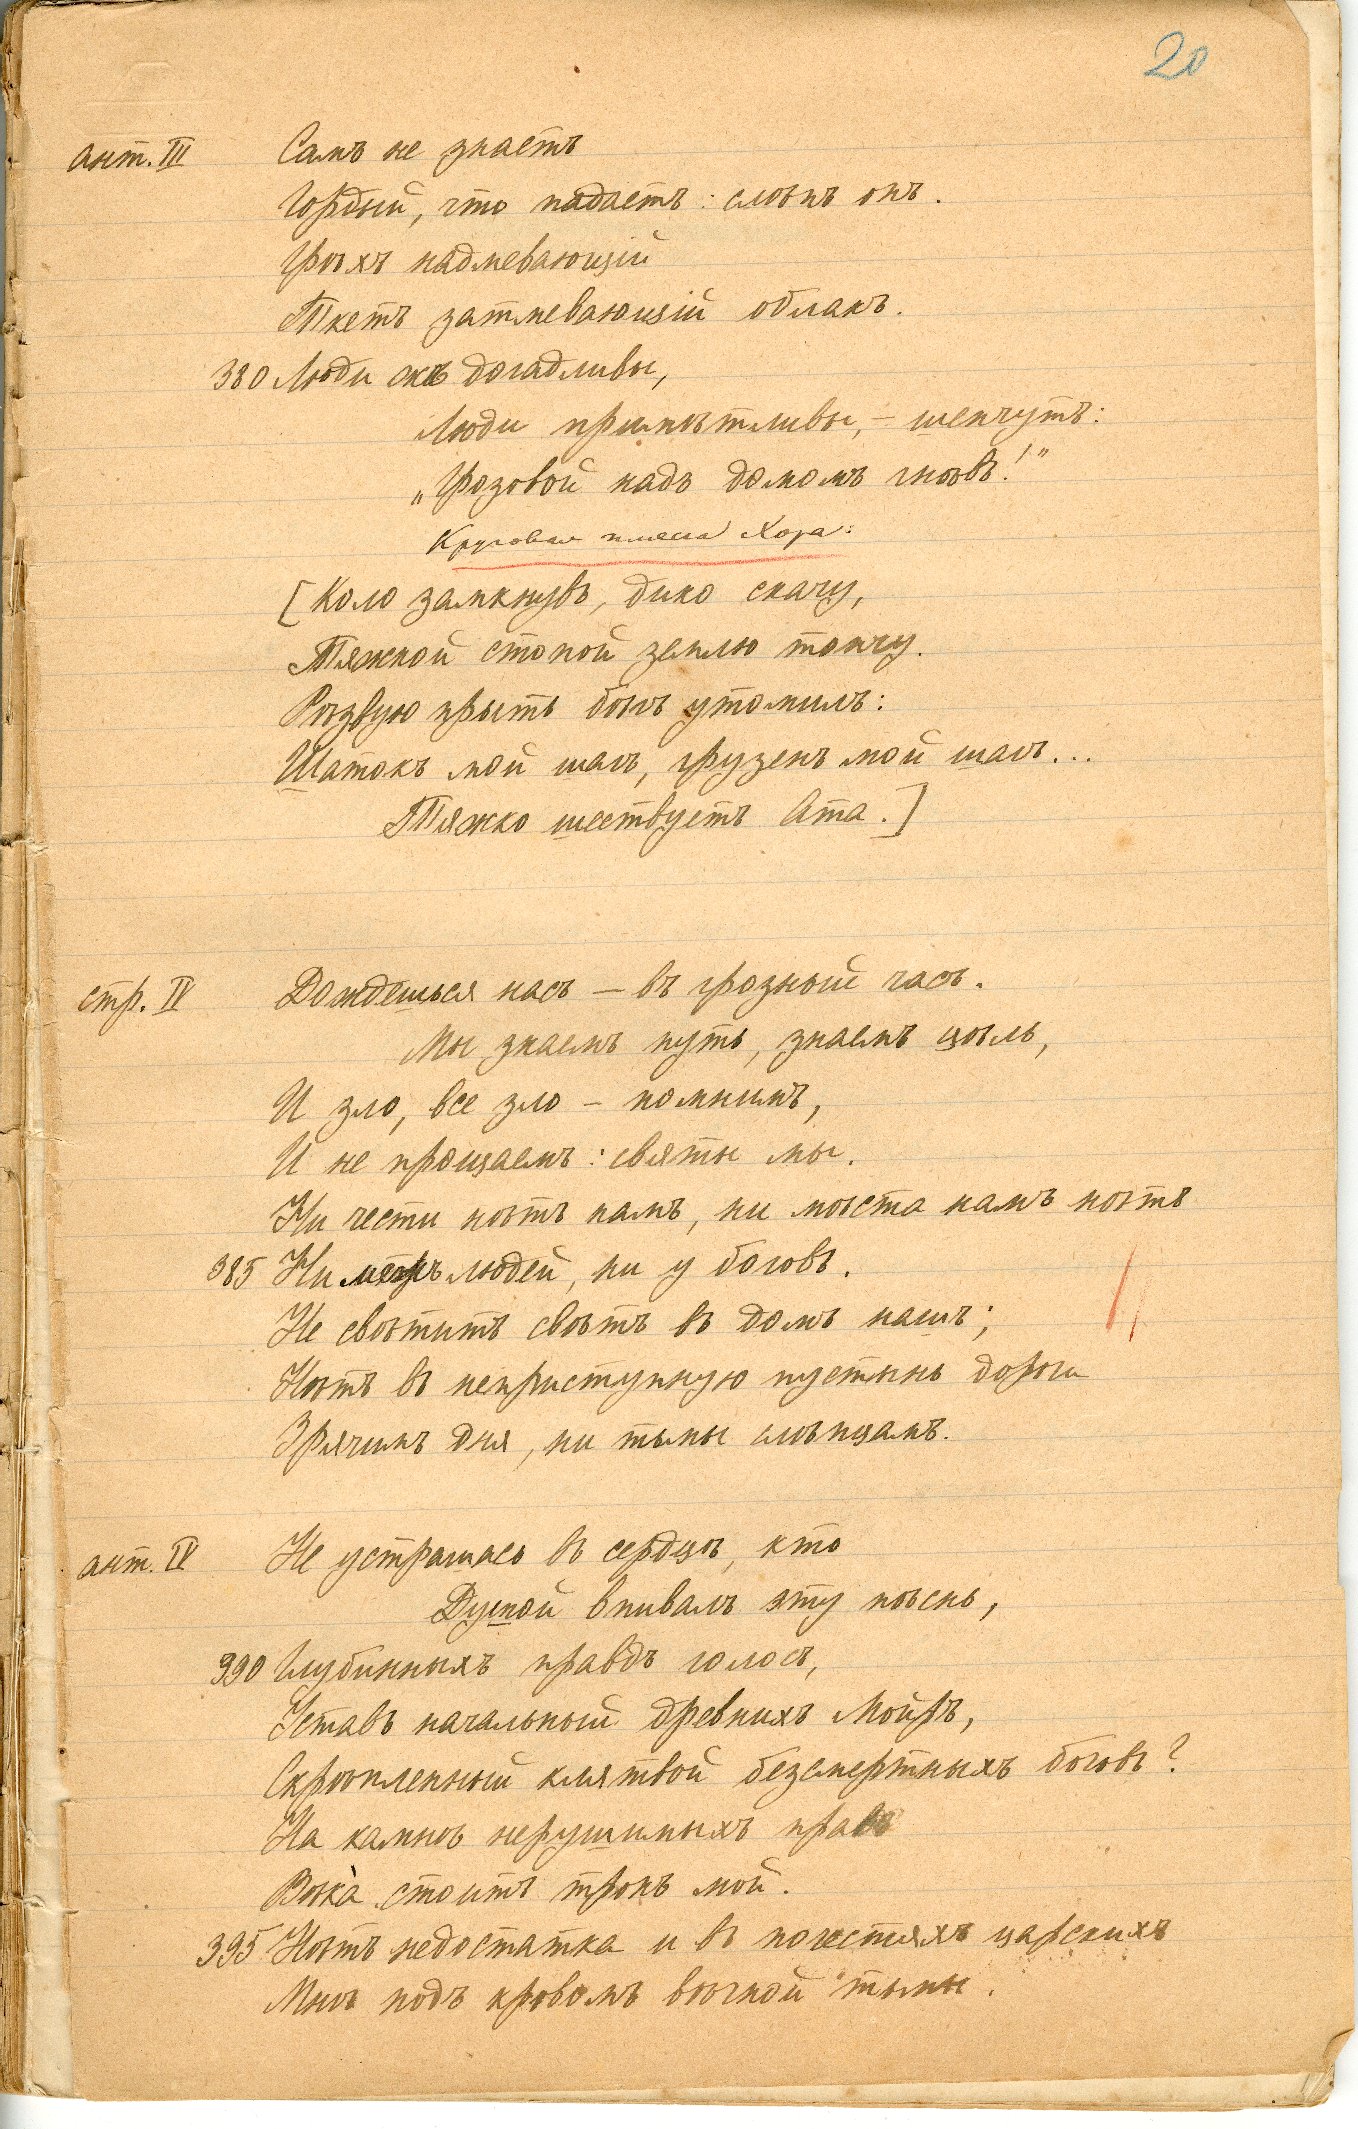 20
ант. III Самъ не знаетъ
Гордый, что падаетъ: слѣпъ онъ.
Грѣхъ надмевающій
Ткетъ затмевающій облакъ.
380 Люди жъ догадливы,
Люди примѣтливы, – шепчутъ:
„Грозовой надъ домомъ гнѣвъ!"
Круговая пляска Хора:
[Коло замкнувъ, дико скачу,
Тяжкой стопой землю топчу.
Рѣзвую прыть бѣгъ утомилъ:
Шатокъ мой шагъ, грузенъ мой шагъ...
Тяжко шествуетъ Ата.]
стр. IV Дождешься насъ – въ грозный часъ.
Мы знаемъ путь, знаемъ цѣль,
И зло, все зло – помнимъ,
И не прощаемъ: святы мы.
Ни чести нѣтъ намъ, ни мѣста намъ нѣтъ
385 Ни людей, ни у боговъ.
Не свѣтитъ свѣтъ въ домъ нашъ;
Нѣтъ въ неприступную пустынь дороги
Зрячимъ дня, ни тьмы слѣпцамъ.
ант. IV Не устрашась въ сердцѣ, кто
Душой впивалъ эту пѣснь,
390 Глубинныхъ правдъ голосъ,
Уставъ начальный древнихъ Мойръ,
Скрѣпленный клятвой безсмертныхъ боговъ?
На камнѣ нерушимыхъ правъ
Вѣка стоитъ тронъ мой.
395 Нѣтъ недостатка и въ почестяхъ царскихъ
Мнѣ подъ кровомъ вѣчной тьмы.